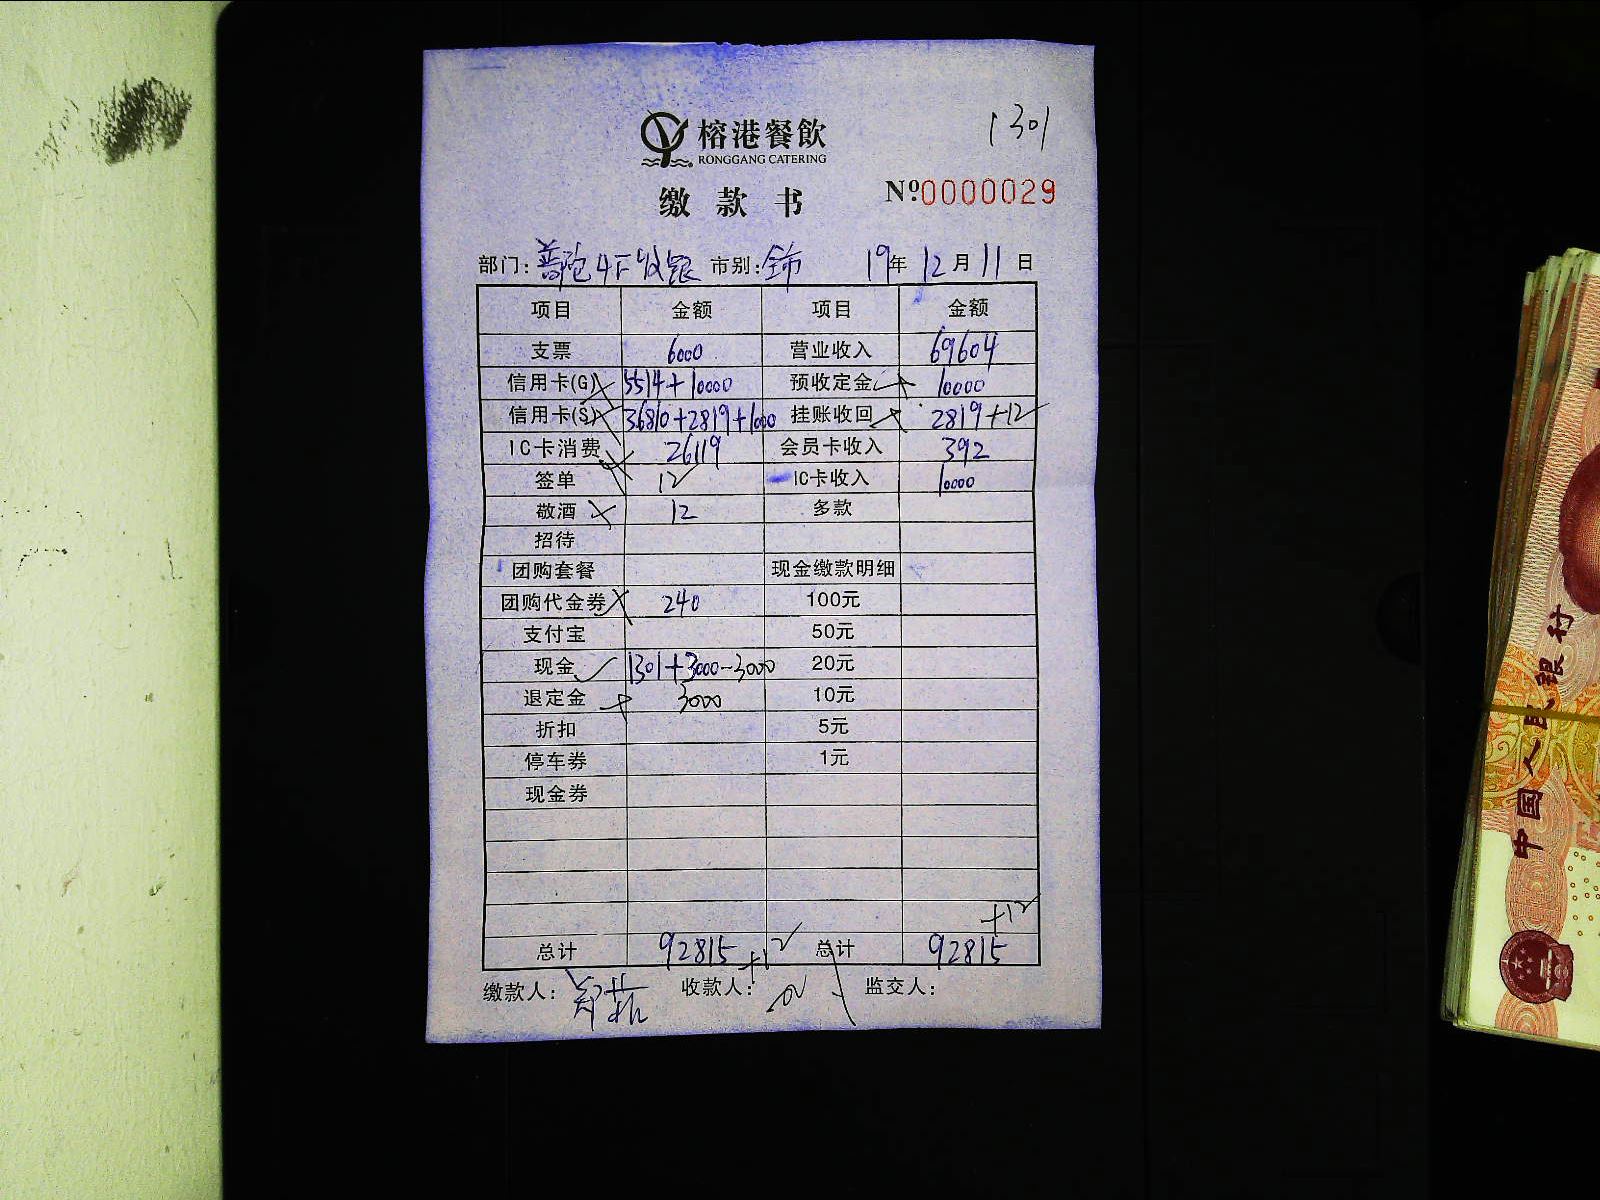 1301
榕港餐飲
RONGGANG CATERING
缴款书 Nº0000029
部门:普陀4F收银 市别:全市 19年12月11日
项目 金额 项目 金额
支票 6000 营业收入 69604
信用卡(G) 5514+10000 预收定金 10000
信用卡(S) 36810+2819+1000 挂账收回 2819+12
IC卡消费 26119 会员卡收入 392
签单 12 IC卡收入 10000
敬酒 12 多款
招待
团购套餐 现金缴款明细
团购代金券 240 100元
支付宝 50元
现金 1301+3000-3000 20元
退定金 3000 10元
折扣 5元
停车券 1元
现金券
总计 92815+12 总计 92815+12
缴款人: 收款人: 监交人:
中国人民银行